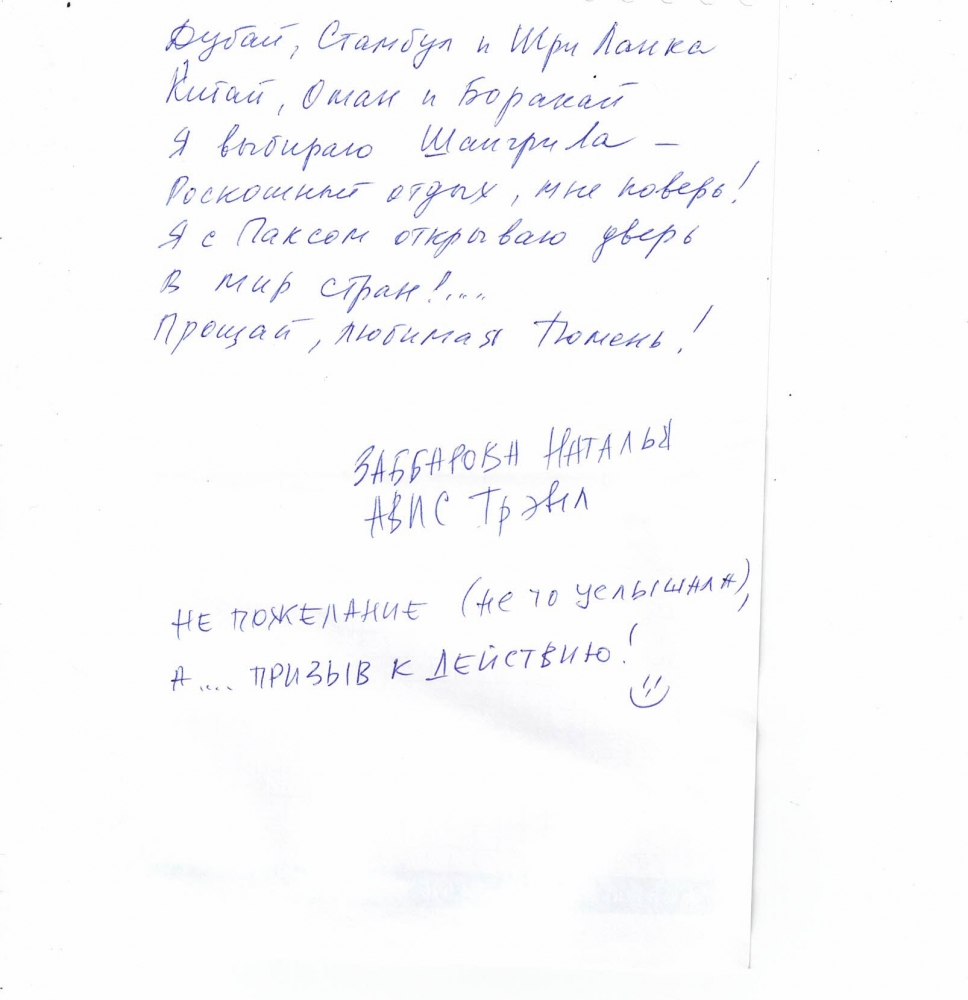 Дубай, Стамбул и Шри Ланка
Китай, Оман и Боракай
Я выбираю ШангриЛа –
Роскошный отдых, мне поверь!
Я с Паксом открываю дверь
В мир стран!....
Прощай, любимая Тюмень!
ЗАББАРОВА НАТАЛЬЯ
АВИС Трэвел
НЕ ПОЖЕЛАНИЕ (НЕ ТО УСЛЫШАЛА),
А .... ПРИЗЫВ К ДЕЙСТВИЮ!